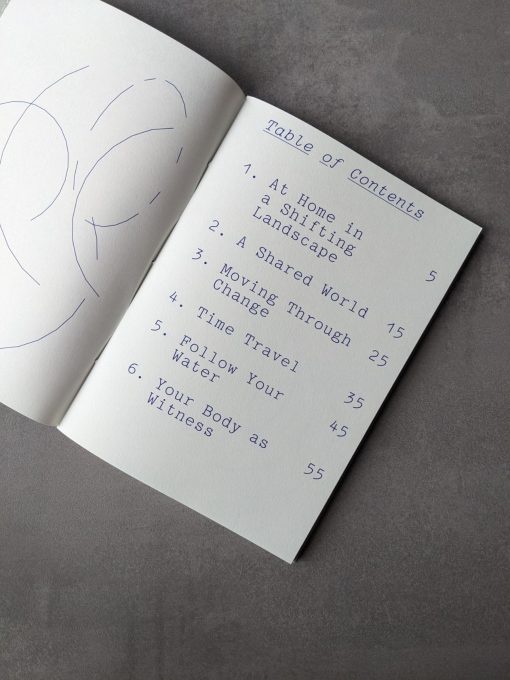 Table of Contents
1. At Home in
a Shifting
Landscape 5
2. A Shared World 15
3. Moving Through
Change 25
4. Time Travel 35
5. Follow Your
Water 45
6. Your Body as
Witness 55